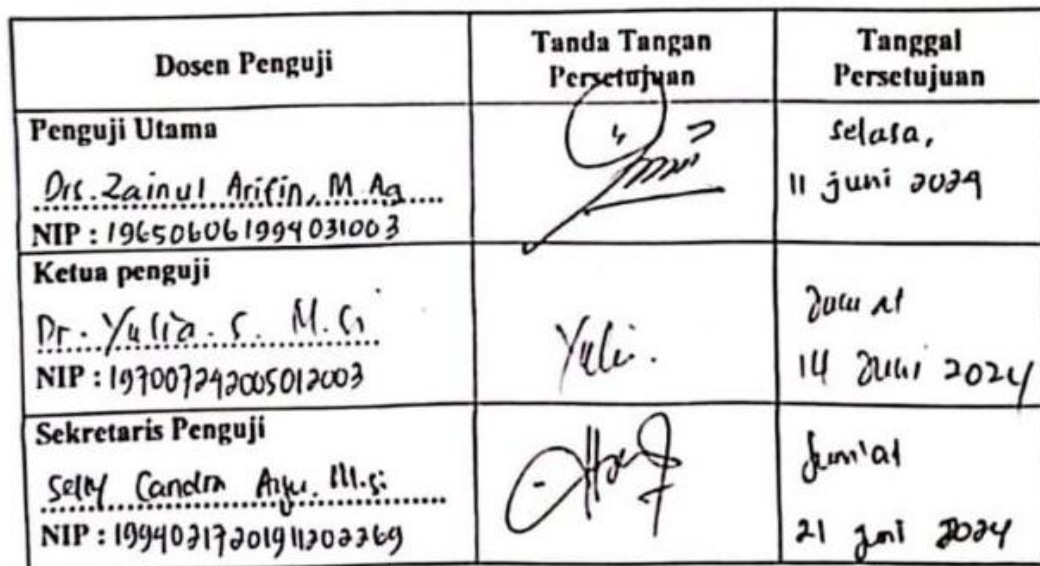 Dosen Penguji
Tanda Tangan
Persetujuan
Tanggal
Persetujuan
Penguji Utama
Drs. Zainul Arifin, M.Ag
NIP : 196506061994031003
selasa,
11 juni 2024
Ketua penguji
Dr. Yulia. S. M.Si
NIP : 197007242005012003
Yuli.
Jum'at
14 Juni 2024
Sekretaris Penguji
Selly Candra Ayu. M.Si
NIP : 19940217201911202269
Jum'at
21 juni 2024